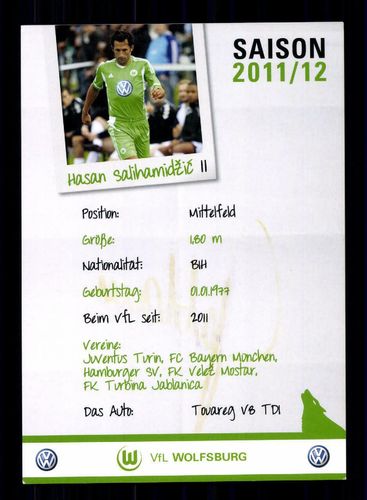 SAISON
2011/12
Hasan Salihamidžić 11
Position: Mittelfeld
Größe: 1.80 m
Nationalität: BIH
Geburtstag: 01.01.1977
Beim VfL seit: 2011
Vereine:
Juventus Turin, FC Bayern München,
Hamburger SV, FK Velež Mostar,
FK Turbina Jablanica
Das Auto: Touareg V8 TDI
VfL WOLFSBURG